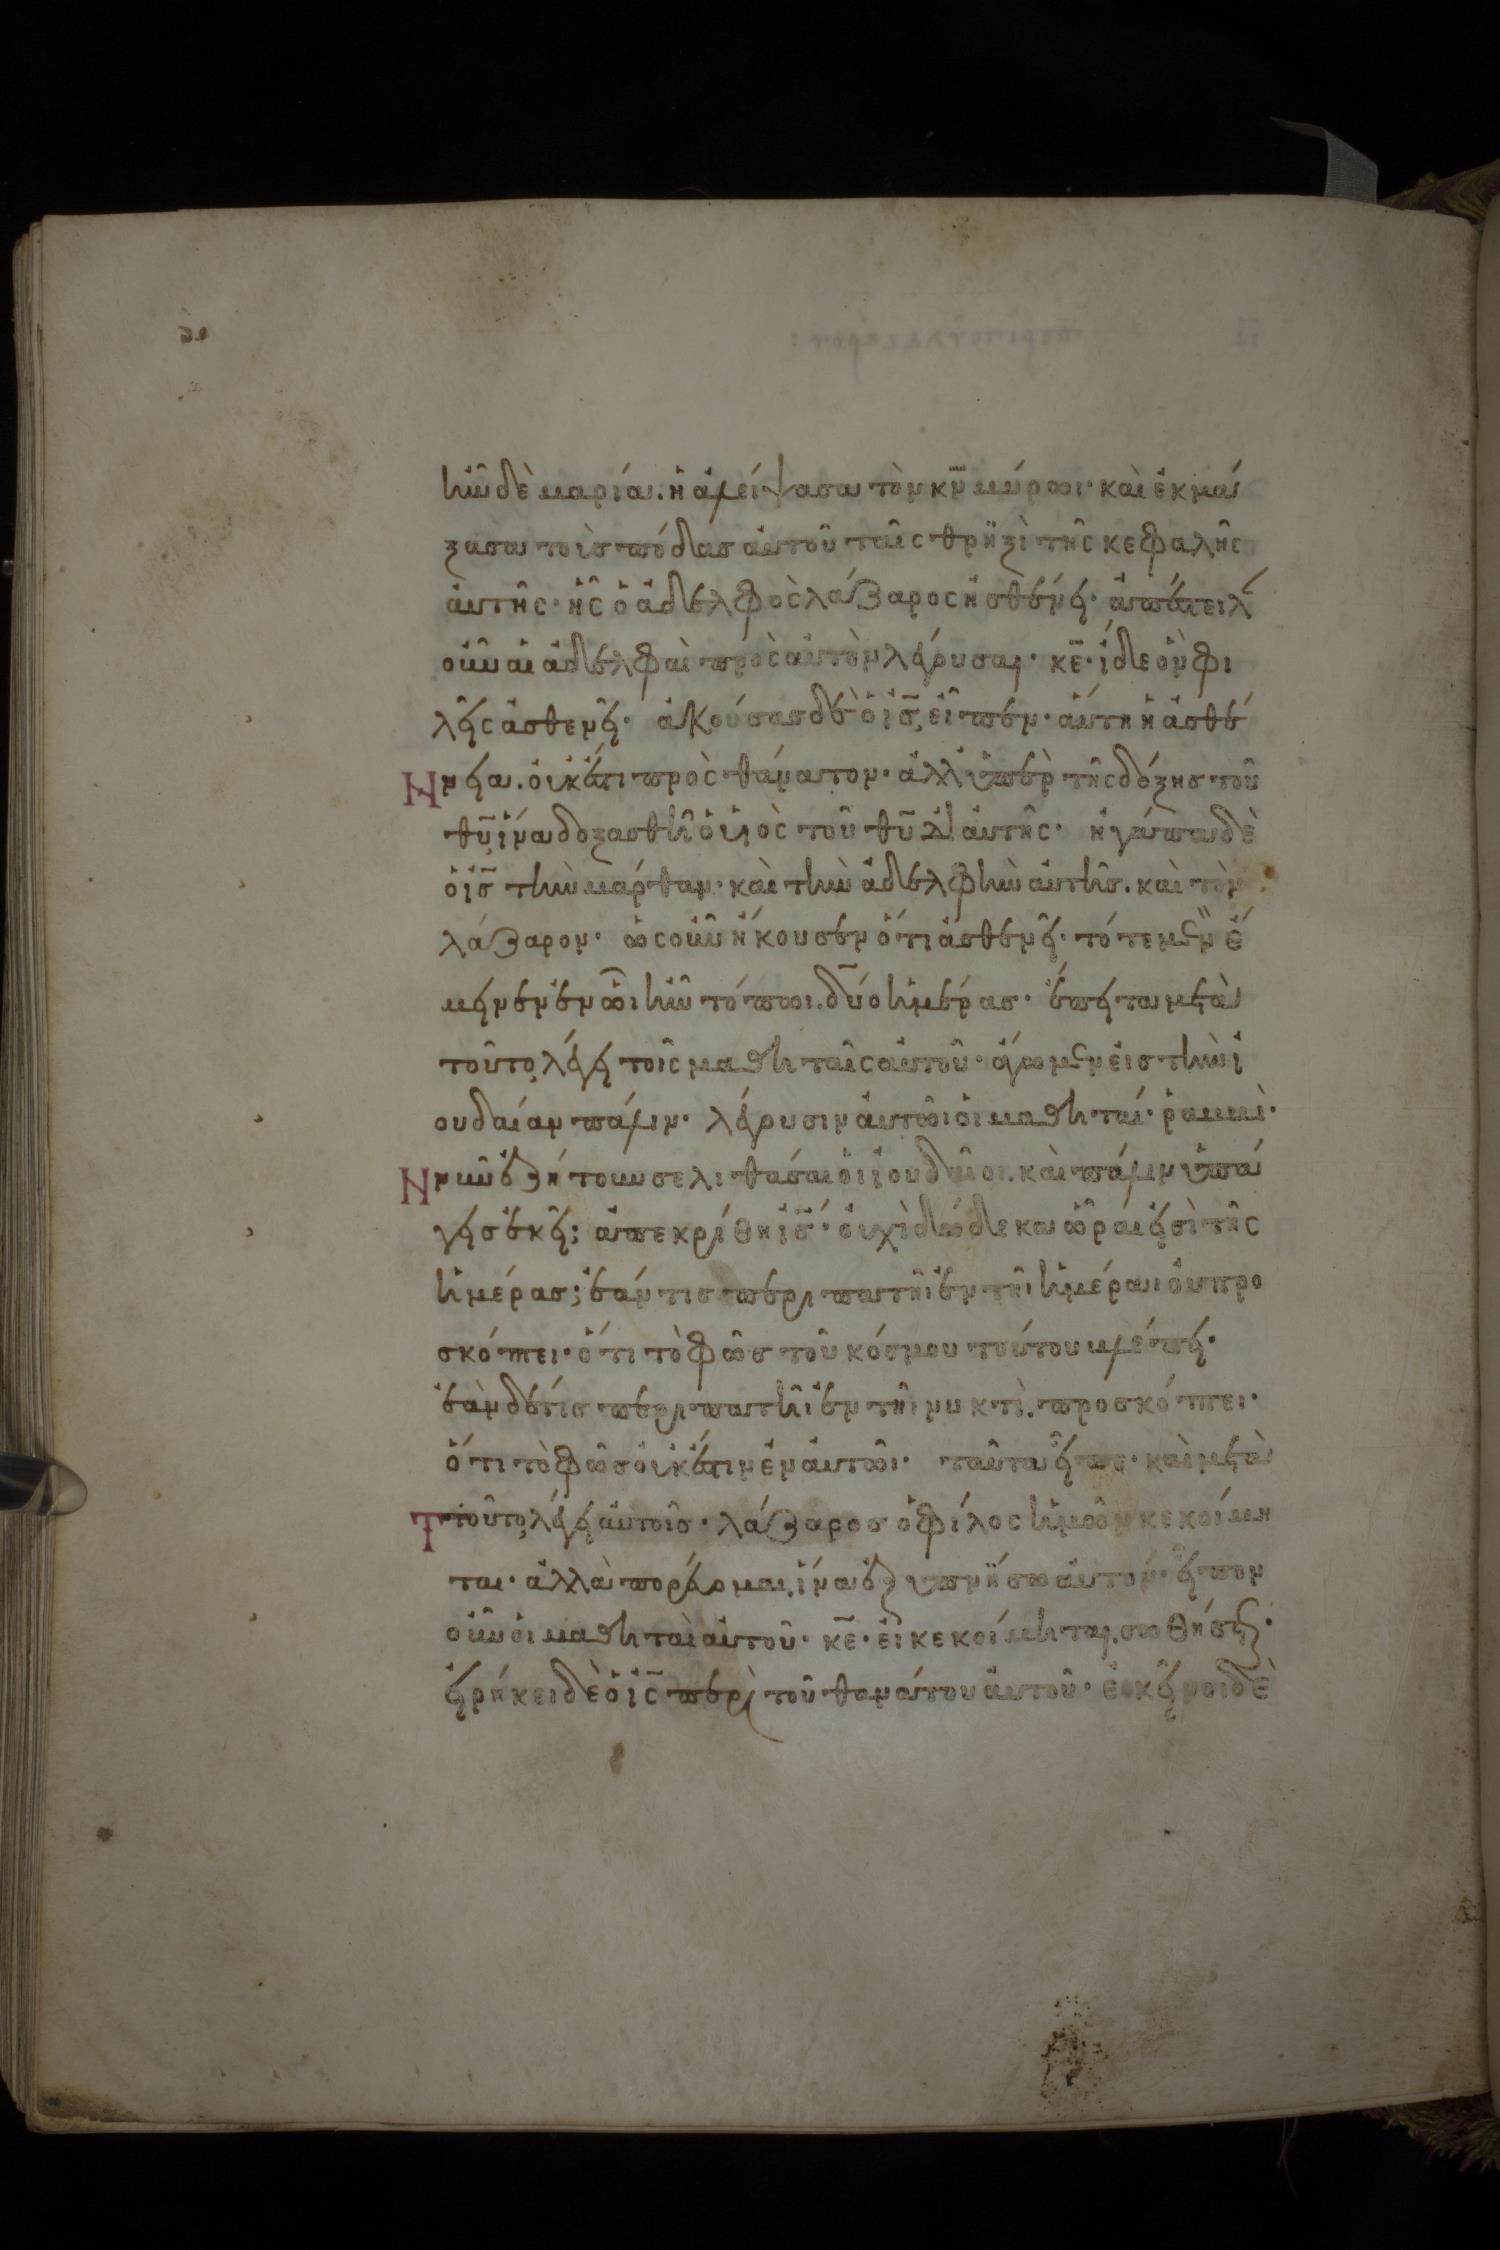 ἦν δὲ μαρία. ἡ ἀλείψασα τὸν κν̅ μύρωι· καὶ ἐκμά
ξασα τοὺς πόδας αὐτοῦ ταῖς θριξὶ τῆς κεφαλῆς
ἀυτῆς· ἧς ὁ ἀδελφὸς λάζαρος ἠσθένει· ἀπέστειλ
οὖν αἱ ἀδελφαὶ πρὸς αὐτὸν λέγουσαι· κε̅· ἴδε ὃν φι
λεῖς ἀσθενεῖ· ἀκούσας δὲ ὁ ις̅, εἶπεν· ἁύτη ἡ ἀσθέ
νεια. οὐκ ἔστι πρὸς θάνατον· ἀλλ' ὑπὲρ τῆς δόξης τοῦ
θυ̅, ἵνα δοξασθῆ ὁ υἱὸς τοῦ θυ̅ δι' ἀυτῆς· ἠγάπα δὲ
ὁ ις̅ τὴν μάρθαν· καὶ τὴν ἀδελφὴν ἀυτῆς. καὶ τὸν
λάζαρον· ὡς οὖν ἤκουσεν ὅτι ἀσθενεῖ· τότε μὲν ἔ
μεινεν ἐν ὧι ἦν τόπωι. δύο ἡμέρας· ἔπειτα μετὰ
τοῦτο, λέγει τοῖς μαθηταῖς αὐτοῦ· ἄγωμεν εἰς τὴν ἰ
ουδαίαν πάλιν· λέγουσιν ἀυτῶι οἱ μαθηταί· ῥαββί·
νῦν ἐζήτουν σε λιθάσαι οἱ ἰουδαῖοι. καὶ πάλιν ὑπά
γεις ἐκεῖ; ἀπεκρίθη ις̅· ὀυχὶ δώδεκα ὧραι εἰσὶ τῆς
ἡμέρας; ἐάν τις περιπατῆι ἐν τῆι ἡμέραι ὀυ προ
σκόπτει· ὅτι τὸ φῶς τοῦ κόσμου τούτου βλέπει·
ἐὰν δέ τις περιπατῆι ἐν τῆι νυκτὶ. προσκόπτει·
ὅτι τὸ φῶς οὐκ ἔστιν ἐν ἀυτῶι· ταῦτα εἶπε· καὶ μετὰ
τοῦτο, λέγει ἀυτοῖς· λάζαρος ὁ φίλος ἡμῶν κεκοίμη
ται· ἀλλὰ πορεύομαι, ἵνα ἐξυπνήσω ἀυτόν· εἶπον
οὖν οἱ μαθηταὶ ἀυτοῦ· κε̅· εἰ κεκοίμηται, σωθήσεται·
εἰρήκει δὲ ὁ ις̅ περὶ τοῦ θανάτου ἀυτοῦ· ἐκεῖνοι δὲ